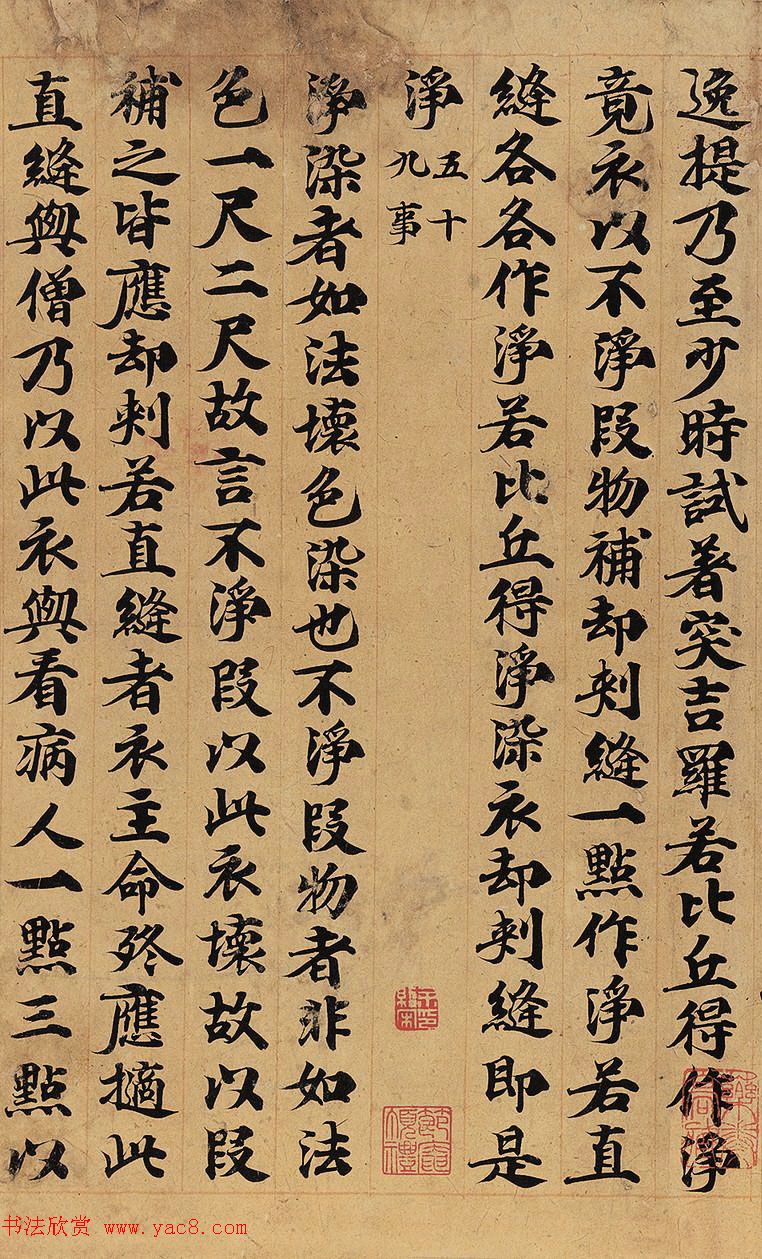 逸提乃至少時試著突吉羅若比丘得作淨
竟衣以不淨段物補却刺縫一點作淨若直
縫各各作淨若比丘得淨染衣却刺縫即是
淨五十九事
淨染者如法壞色染也不淨段物者非如法
色一尺二尺故言不淨段以此衣壞故以段
補之皆應却刺若直縫者衣主命終應擿此
直縫與僧乃以此衣與看病人一點三點以
书法欣赏 www.yac8.com